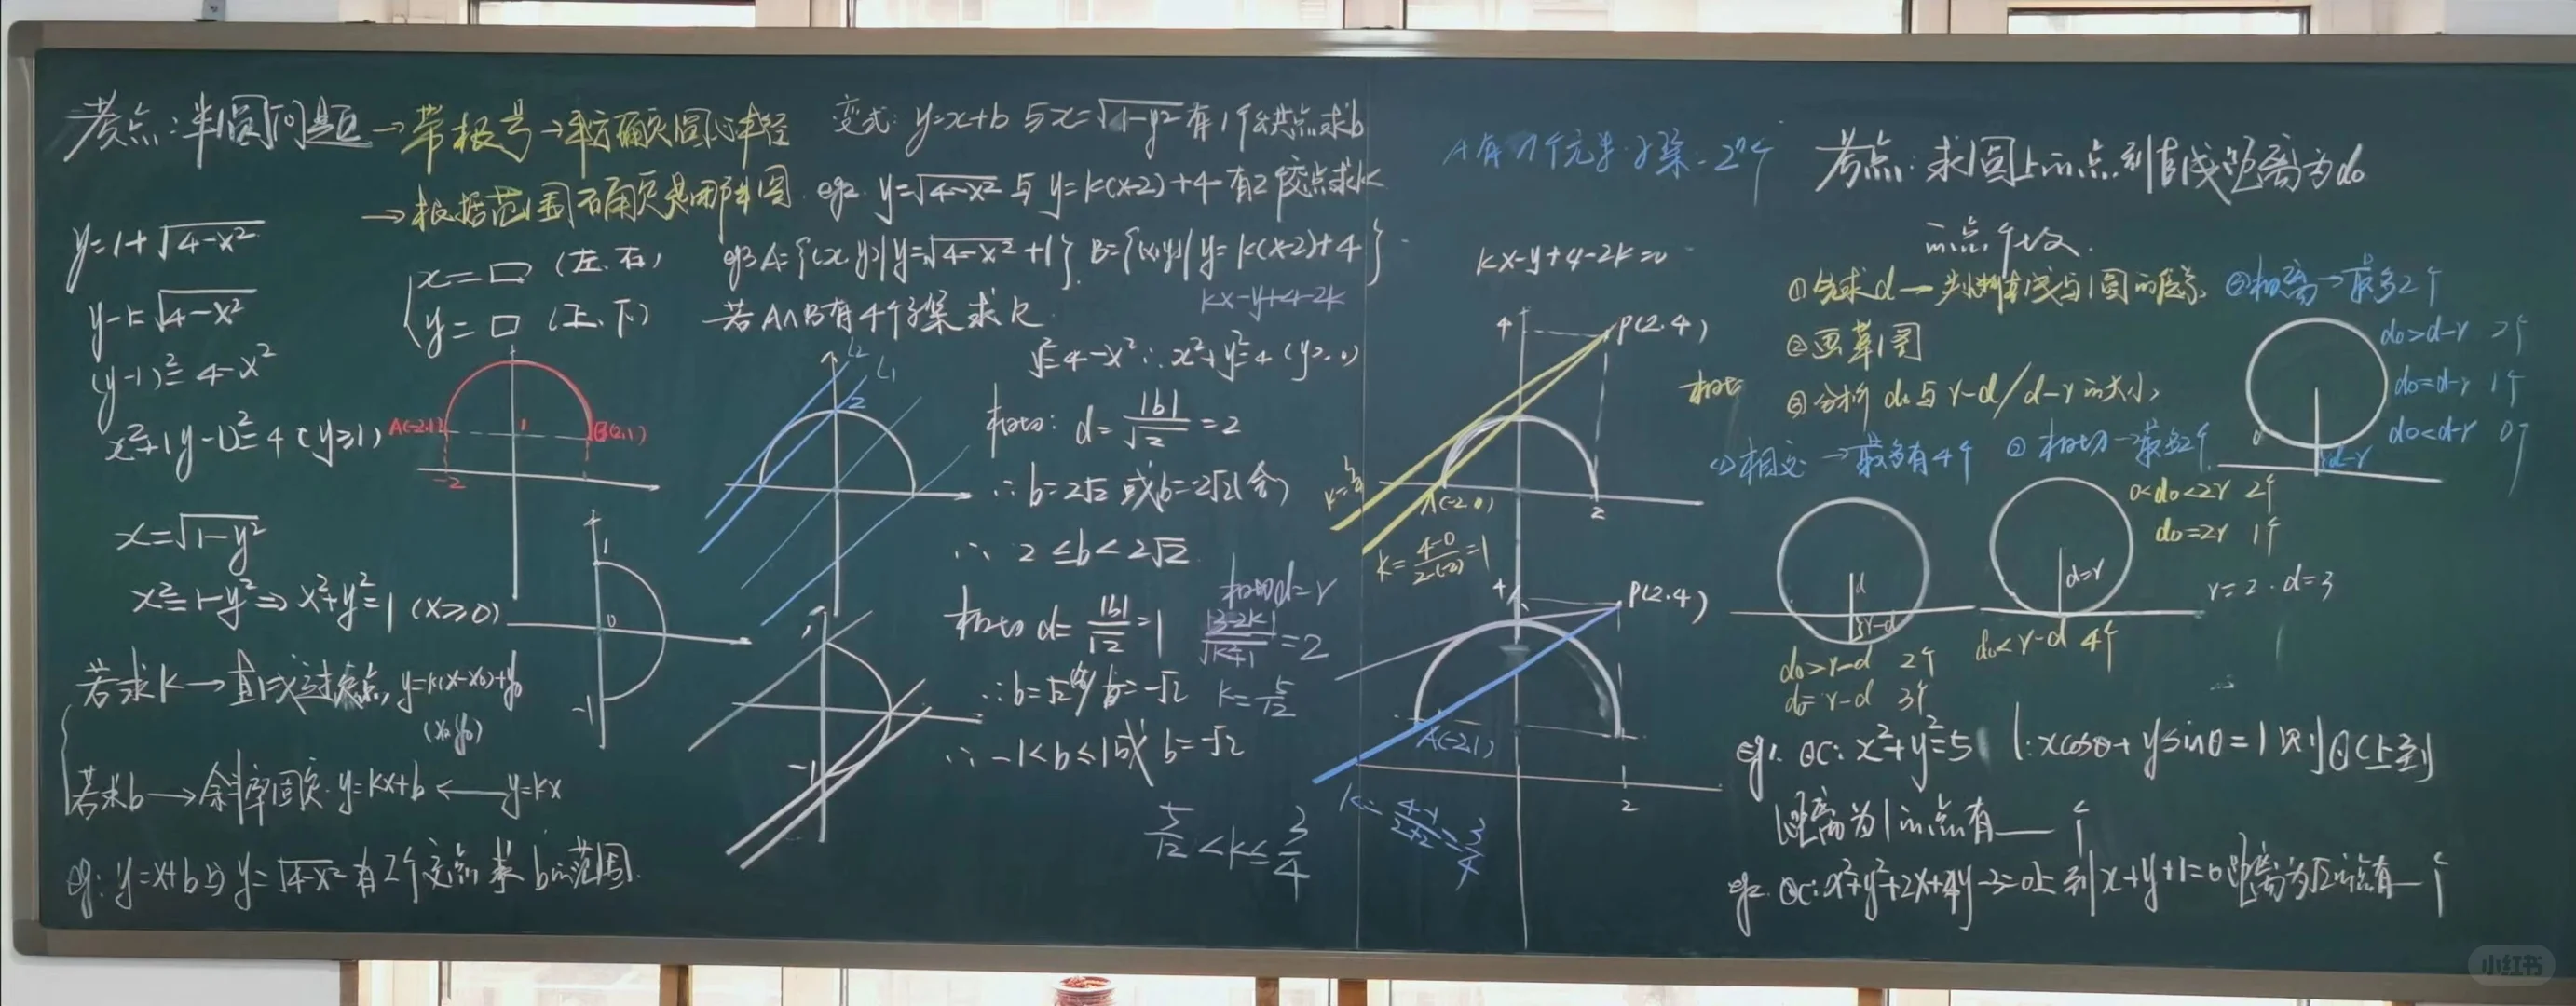 考点:半圆问题→带根号→平方确定圆心半径
→根据范围确定是哪半圆
y=1+√4-x²
y-1=√4-x²
(y-1)²=4-x²
x²+(y-1)²=4 (y≥1)
{x=□ (左、右)
y=□ (上、下)
A(-2,1)
1
B(2,1)
-2
x=√1-y²
x²=1-y²⇒x²+y²=1 (x≥0)
1
0
-1
若求k→直线过定点,y=k(x-x₀)+y₀
(x₀,y₀)
若求b→斜率固定.y=kx+b←y=kx
eg: y=x+b与y=√4-x²有2个交点求b的范围.
变式: y=x+b与x=√1-y²有1个公共点求b
eg2. y=√4-x²与y=k(x-2)+4有2个交点求k
eg3 A={(x,y)|y=√4-x²+1}. B={(x,y)|y=k(x-2)+4}
若A∩B有4个子集求k
kx-y+4-2k
y²=4-x²∴x²+y²=4 (y≥0)
L2
L1
2
相切: d=|b|/√2=2
∴b=2√2或b=-2√2(舍)
∴2≤b<2√2
1
-1
相切d=|b|/√2=1
∴b=√2(舍)b=-√2
∴-1<b≤1或b=-√2
相切d=r
|3-2k|/√k²+1=2
k=5/12
5/12<k≤3/4
A有n个元素.子集:2ⁿ个
kx-y+4-2k=0
4
P(2.4)
相切
A(-2.0)
2
k=4-0/2-(-2)=1
4
P(2.4)
A(-2,1)
2
k=4-1/2+2=3/4
考点:求圆上的点到直线距离为d₀
的点个数.
①先求d→判断直线与圆的关系
②画草图
③分析d₀与r-d/d-r的大小
①相交→最多有4个
②相切→最多2个
③相离→最多2个
d₀>d-r 2个
d₀=d-r 1个
d₀<d-r 0个
d
d-r
0<d₀<2r 2个
d₀=2r 1个
d
r-d
d=r
r=2.d=3
d₀>r-d 2个
d₀=r-d 3个
d₀<r-d 4个
eg1. ⊙C: x²+y²=5 l:xcosθ+ysinθ=1则⊙C上到
l距离为1的点有__个
eg2. ⊙C:x²+y²+2x+4y-3=0上到x+y+1=0距离为√2的点有__个
小红书